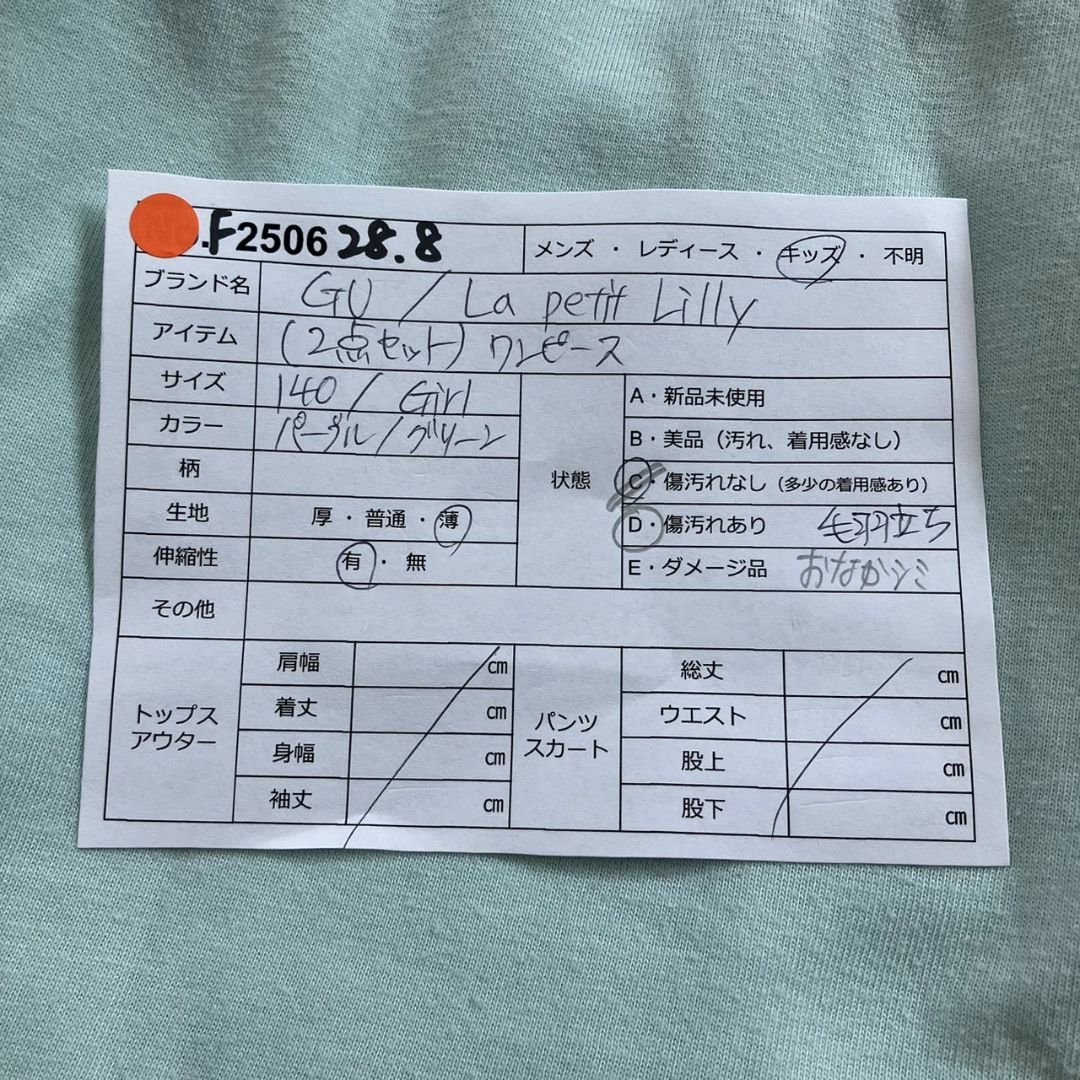 .F2506 28.8 メンズ ・ レディース ・ キッズ ・ 不明
ブランド名 GU / La petit Lilly
アイテム (2点セット) ワンピース
サイズ 140 / Girl
カラー パープル / グリーン
柄
生地 厚 ・ 普通 ・ 薄
伸縮性 有 ・ 無
状態
A・新品未使用
B・美品（汚れ、着用感なし）
C・傷汚れなし（多少の着用感あり）
D・傷汚れあり 毛羽立ち
E・ダメージ品 おなかシミ
その他
トップス
アウター
肩幅 cm
着丈 cm
身幅 cm
袖丈 cm
パンツ
スカート
総丈 cm
ウエスト cm
股上 cm
股下 cm